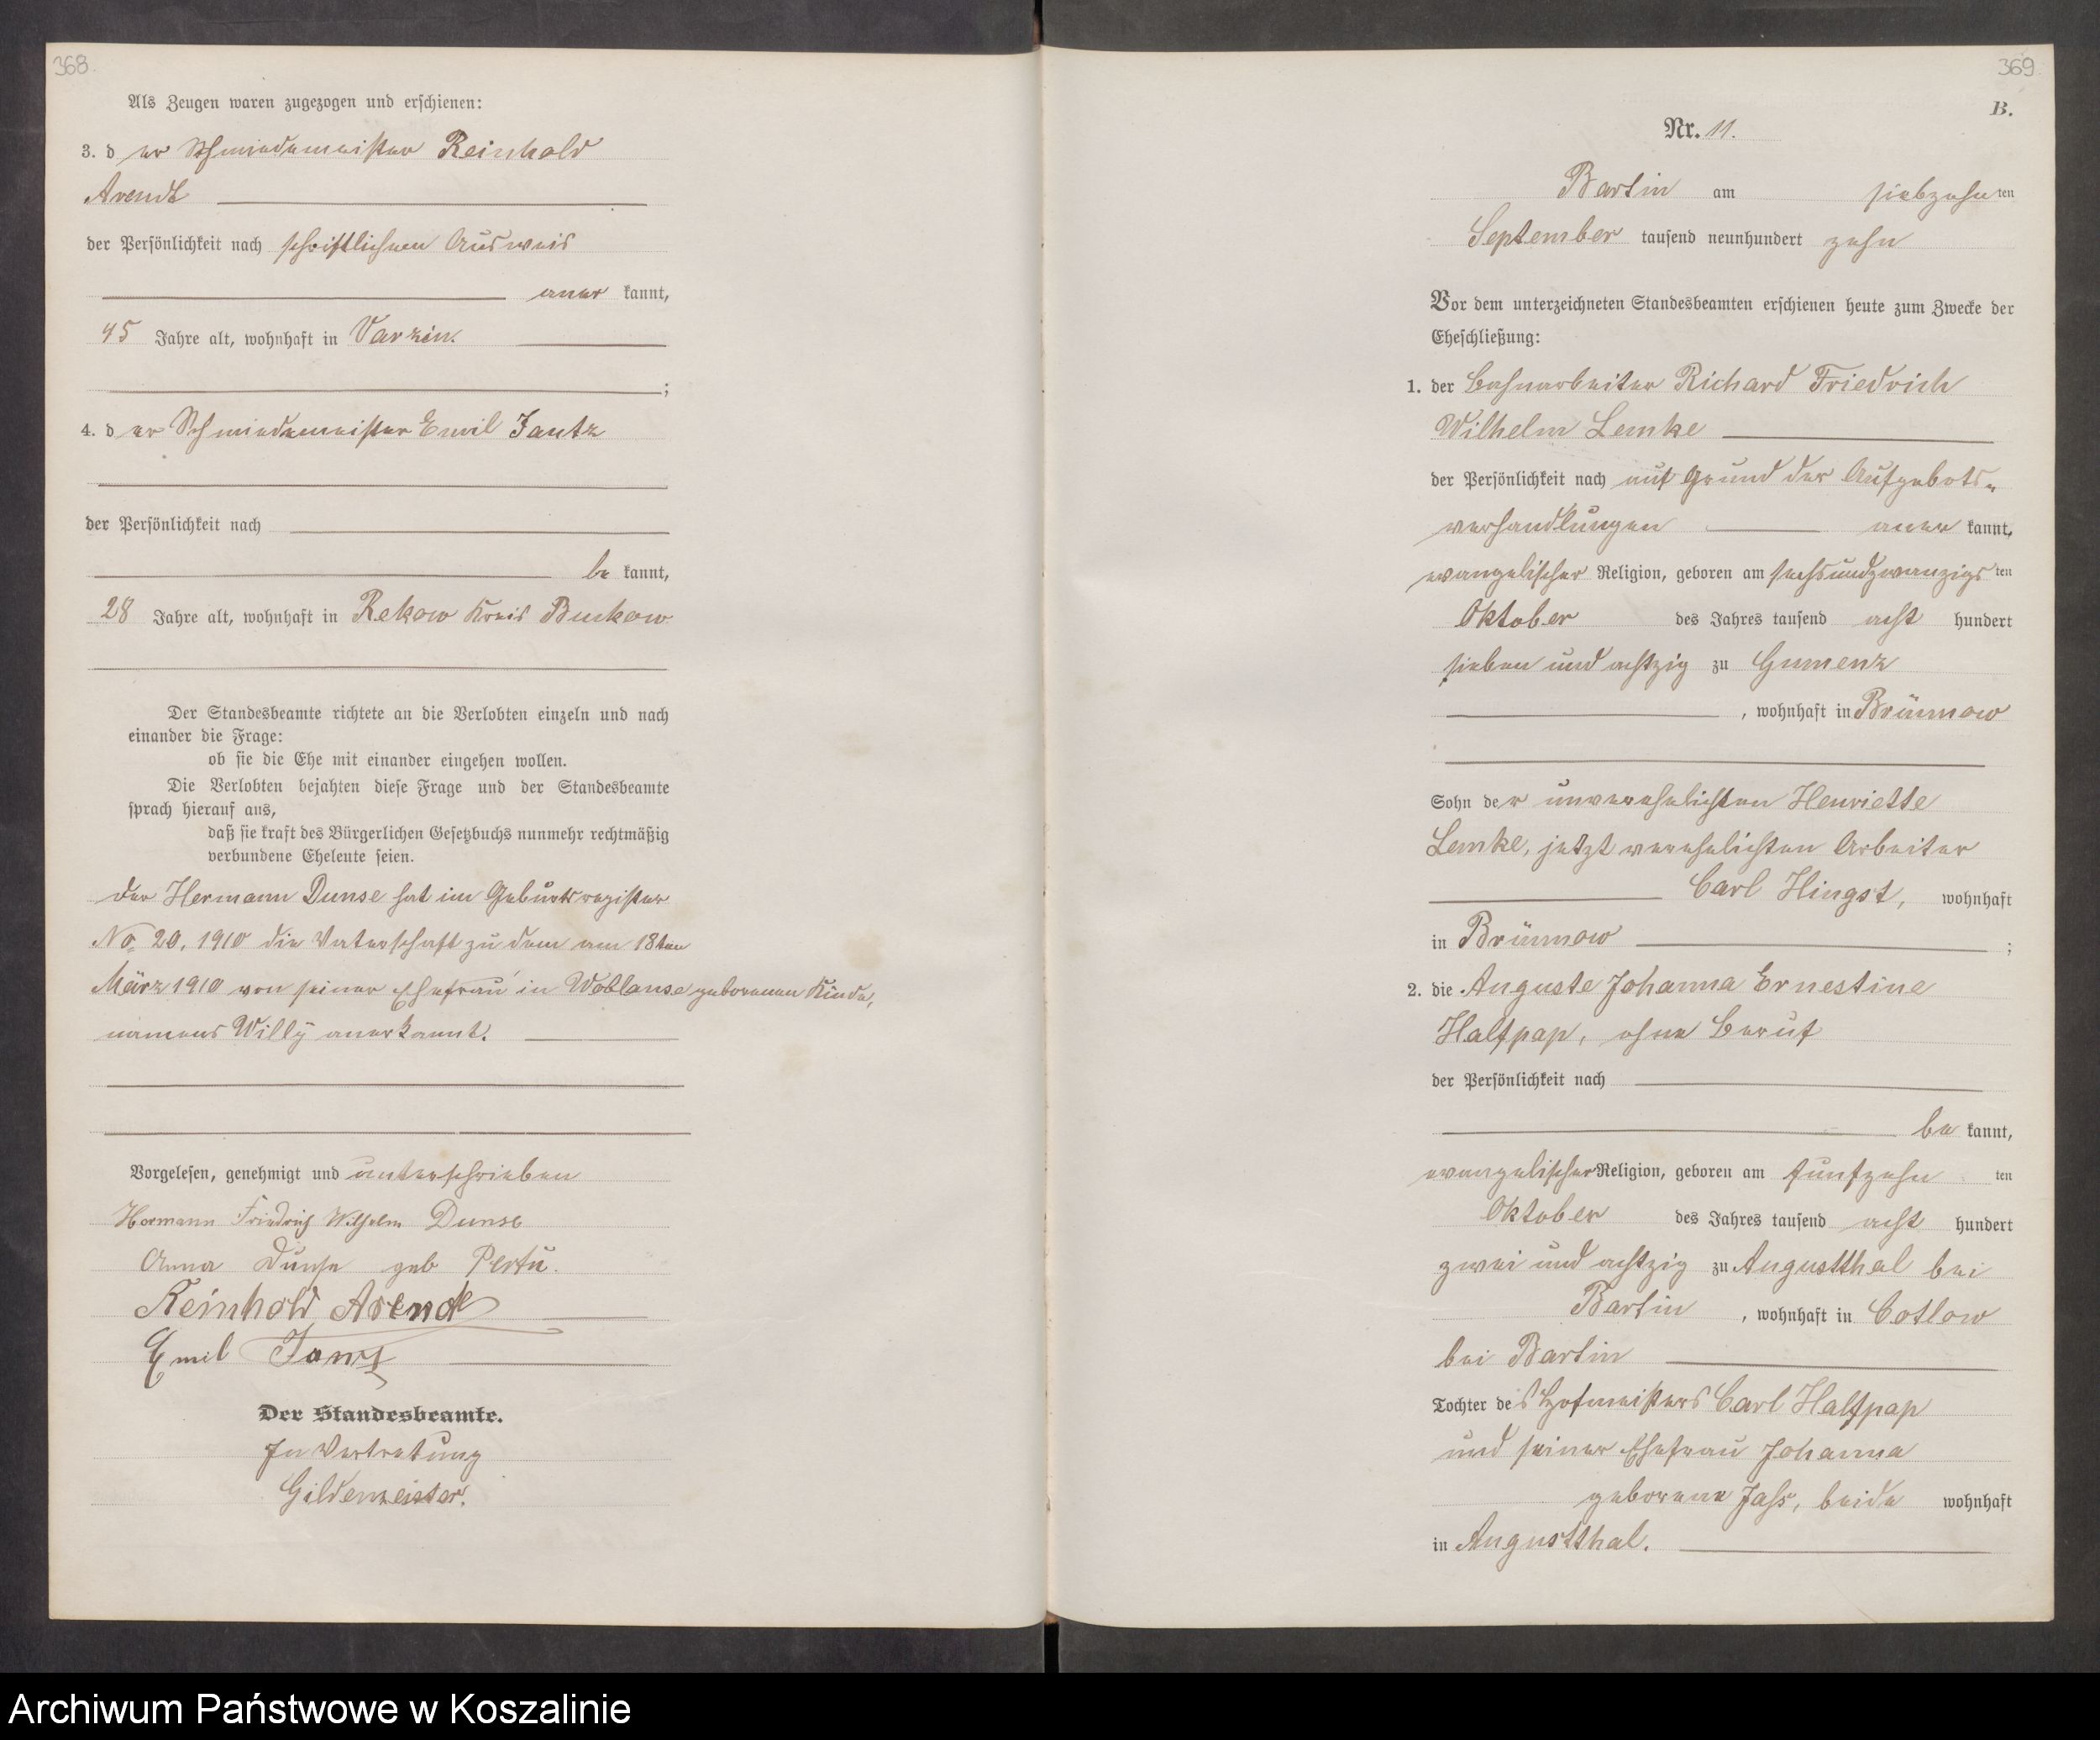 368.
Als Zeugen waren zugezogen und erschienen:
3. der Schmiedemeister Reinhold
Arendt
der Persönlichkeit nach schriftlichen Ausweis
aner kannt,
45 Jahre alt, wohnhaft in Varzin.
;
4. der Schmiedemeister Emil Jantz
der Persönlichkeit nach
be kannt,
28 Jahre alt, wohnhaft in Rekow Kreis
Der Standesbeamte richtete an die Verlobten einzeln und nach
einander die Frage:
ob sie die Ehe mit einander eingehen wollen.
Die Verlobten bejahten diese Frage und der Standesbeamte
sprach hierauf aus,
daß sie kraft des Bürgerlichen Gesetzbuchs nunmehr rechtmäßig
verbundene Eheleute seien.
Der Hermann Dunse hat im Geburtsregister
No. 20, 1910 die Vaterschaft zu dem am 18ten
März 1910 von seiner Ehefrau in Woblanse geborenen Kinde,
namens Willÿ anerkannt.
Vorgelesen, genehmigt und unterschrieben
Hermann Friedrich Wilhelm Dunse
Anna Dunse geb
Reinhold Arendt
Emil Jantz
Der Standesbeamte.
In Vertretung
Gildemeister.
369
B.
Nr. 11.
Bartin am siebzehnten
September tausend neunhundert zehn
Vor dem unterzeichneten Standesbeamten erschienen heute zum Zwecke der
Eheschließung:
1. der Bahnarbeiter Richard Friedrich
Wilhelm Lemke
der Persönlichkeit nach auf Grund der Aufgebots-
verhandlungen aner kannt,
evangelischer Religion, geboren am sechsundzwanzigsten
Oktober des Jahres tausend acht hundert
sieben und achtzig zu Gumenz
, wohnhaft in Brünnow
Sohn der unverehelichten Henriette
Lemke, jetzt verehelichten Arbeiter
Carl Hingst, wohnhaft
in Brünnow ;
2. die Auguste Johanna Ernestine
Halfpap, ohne Beruf
der Persönlichkeit nach
be kannt,
evangelischer Religion, geboren am fünfzehn ten
Oktober des Jahres tausend acht hundert
zwei und achtzig zu Augustthal bei
Bartin , wohnhaft in Cotlow
bei Bartin
Tochter des Hofmeisters Carl Halfpap
und seiner Ehefrau Johanna
geborene Jass, beide wohnhaft
in Augustthal.
Archiwum Państwowe w Koszalinie